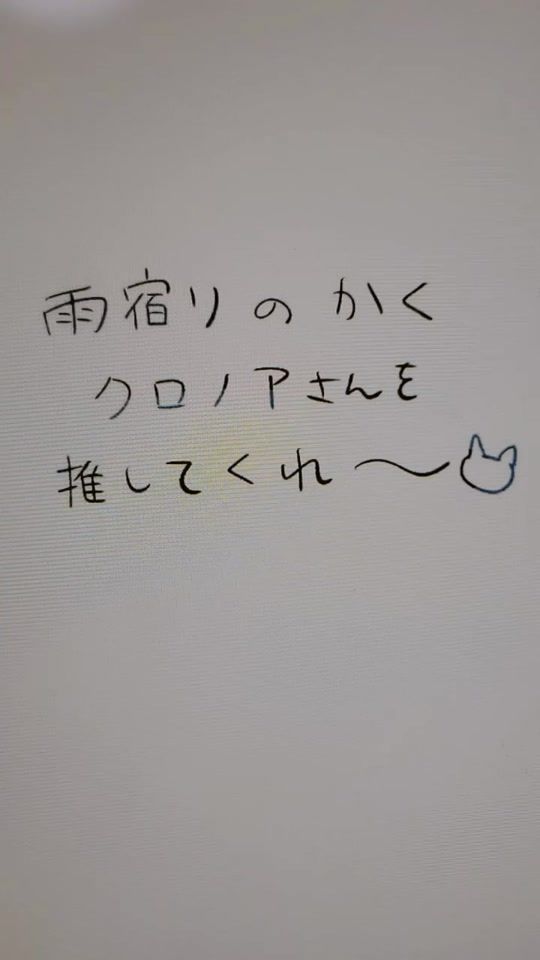 雨宿りのかく
クロノアさんを
推してくれ〜